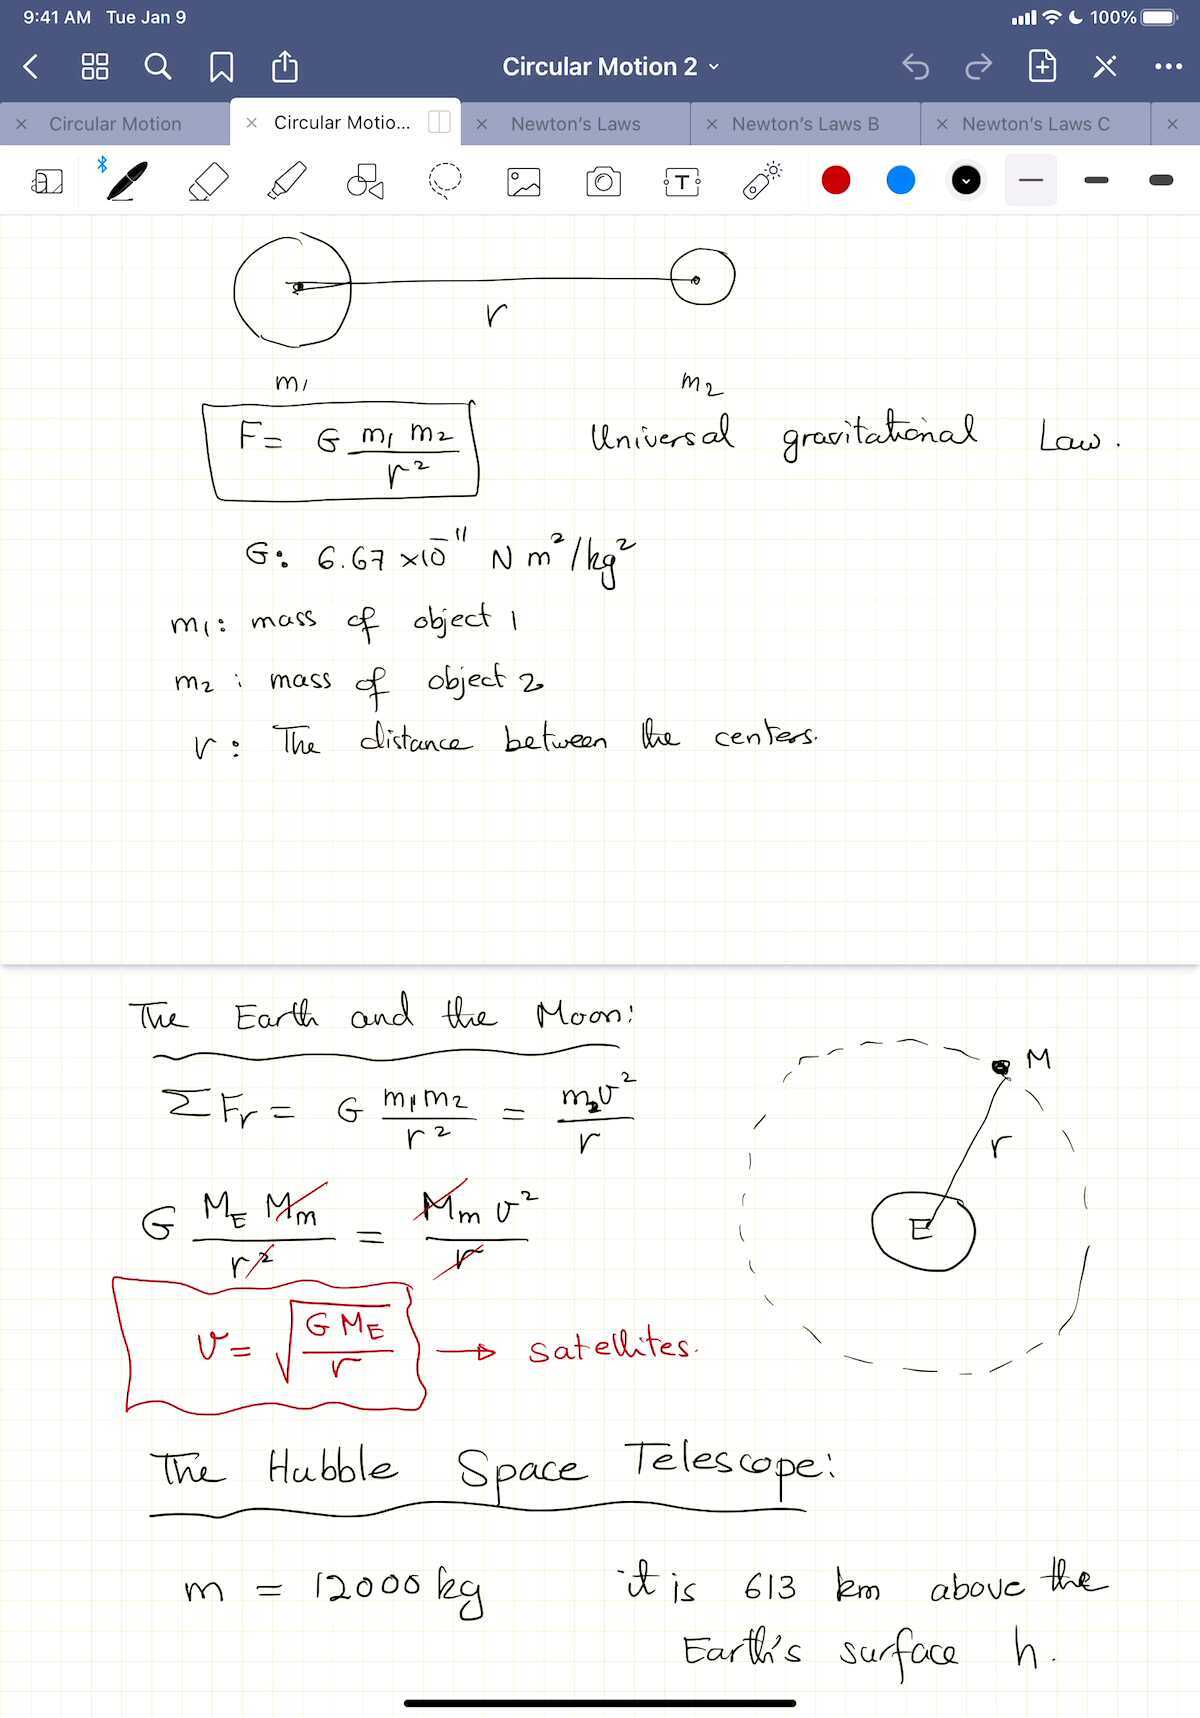 9:41 AM Tue Jan 9 100%
Circular Motion 2
Circular Motion Circular Motio... Newton's Laws Newton's Laws B Newton's Laws C
T
r
m₁ m₂
F = G m₁ m₂ / r² Universal gravitational Law.
G: 6.67 ×10⁻¹¹ N m²/kg²
m₁: mass of object 1
m₂: mass of object 2
r: The distance between the centers.
The Earth and the Moon:
M
ΣFr = G m₁m₂ / r² = m₂v² / r
r
G M_E M_m / r² = M_m v² / r
E
v = √(G M_E / r) → satellites.
The Hubble Space Telescope:
m = 12000 kg it is 613 km above the
Earth's surface h.